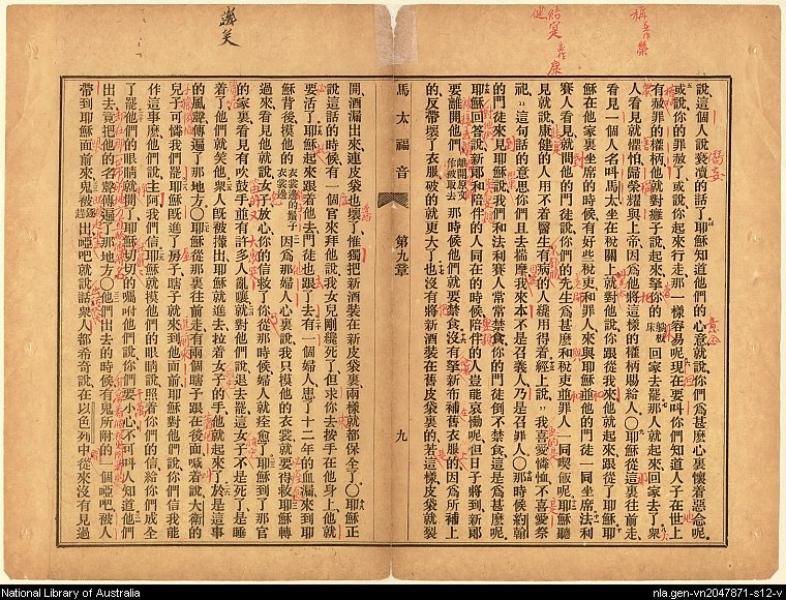 稱善榮
說這個人說褻瀆的話了耶穌知道他們的心意就說你們爲甚麽心裏懷着惡念呢
或說你的罪赦了或說你起來行走那一樣容易呢現在要叫你們知道人子在世上
有赦罪的權柄他就對癱子說起來拏你的回家去罷那人就起來回家去了衆
人看見就懼怕歸榮耀與上帝因爲他將這樣的權柄賜給人〇耶穌從這裏往前走
看見一個人名叫馬太坐在稅關上就對他說你跟從我來他就起來跟從了耶穌耶
穌在他家裏坐席的時候有好些稅吏和罪人來與耶穌並他的門徒一同坐席法利
賽人看見就問他的門徒說你們的先生爲甚麽和稅吏並罪人一同喫飯呢耶穌聽
見就說康健的人用不着醫生有病的人纔用得着經上說我喜愛憐恤不喜愛祭
祀這句話的意思你們且去揣摩我來本不是召義人乃是召罪人〇那時候約翰
的門徒來見耶穌說我們和法利賽人常常禁食你的門徒倒不禁食這是爲甚麽呢
耶穌回答說新郎和陪伴的人同在的時候陪伴的人豈能哀慟呢但日子將到新郎
要離開他們那時候他們就要禁食沒有拏新布補舊衣服的因爲所補上
的反帶壞了衣服破的就更大了也沒有將新酒裝在舊皮袋裏的若這樣皮袋就裂
馬太福音 第九章 九
開酒漏出來連皮袋也壞了惟獨把新酒裝在新皮袋裏兩樣就都保全了〇耶穌正
說這話的時候有一個官來拜他說我女兒剛纔死了但求你去按手在他身上他就
要活了耶穌起來跟着他去門徒也跟了去有一個婦人患了十二年的血漏來到耶
穌背後摸他的衣裳邊的繸子因爲那婦人心裏說我只摸他的衣裳就要得救耶穌轉
過來看見他就說女子放心你的信救了你從那時候婦人就痊愈了耶穌到了那官
的家裏看見有吹鼓手並有許多人亂嚷就對他們說退去罷這女子不是死了是睡
着了他們就笑他衆人旣被攆出耶穌就進去拉着女子的手他就起來了於是這事
的風聲傳遍了那地方〇耶穌從那裏往前走有兩個瞎子跟在後面喊着說大衛的
兒子可憐我們罷耶穌旣進了房子瞎子就來到他面前耶穌對他們說你們信我能
作這事麽他們說主阿我們信耶穌就摸他們的眼睛說照着你們的信給你們成全
了罷他們的眼睛就開了耶穌切切的囑咐他們說你們要小心不可叫人知道他們
出去竟把他的名聲傳遍了那地方〇他們出去的時候有鬼所附的一個啞吧被人
帶到耶穌面前來鬼被趕出啞吧就說話衆人都希奇說在以色列中從來沒有見過
National Library of Australia
nla.gen-vn2047871-s12-v